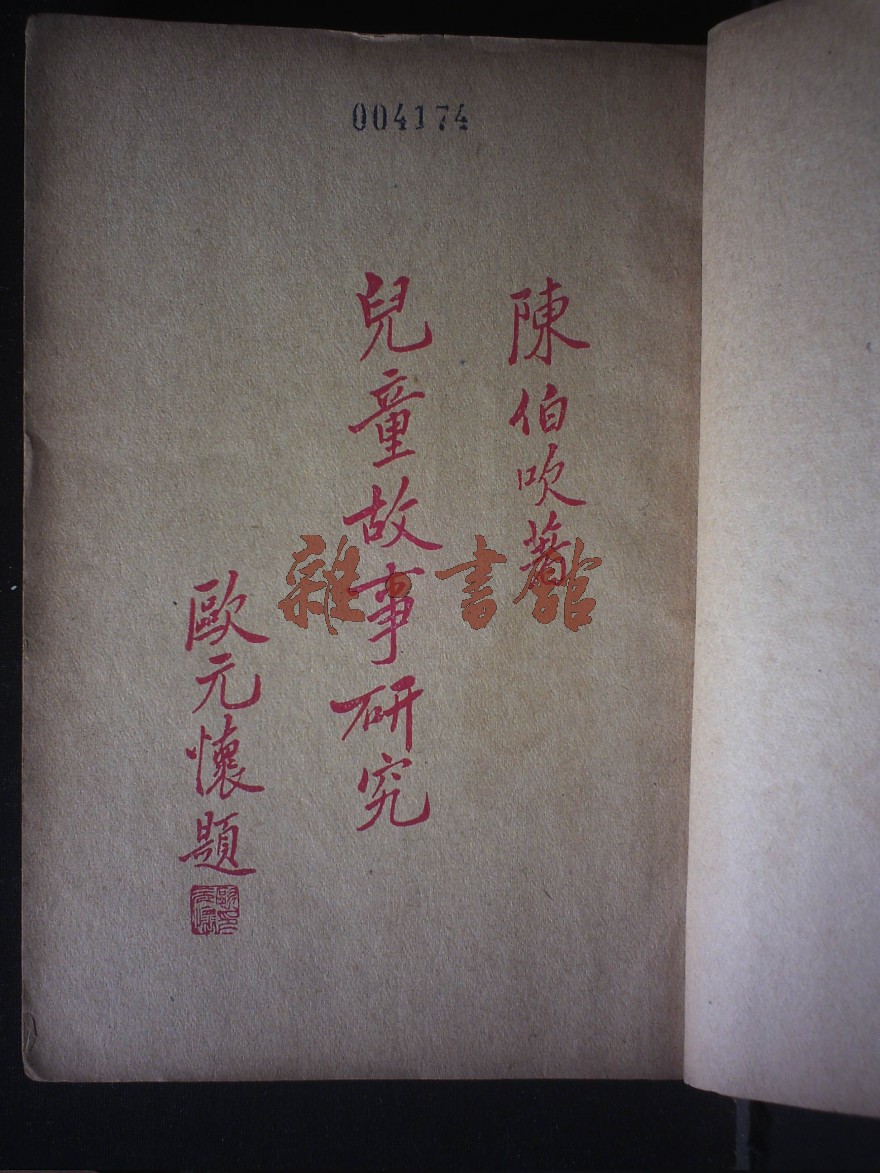 004174
陳伯吹著
兒童故事研究
歐元懷題
雜·書館